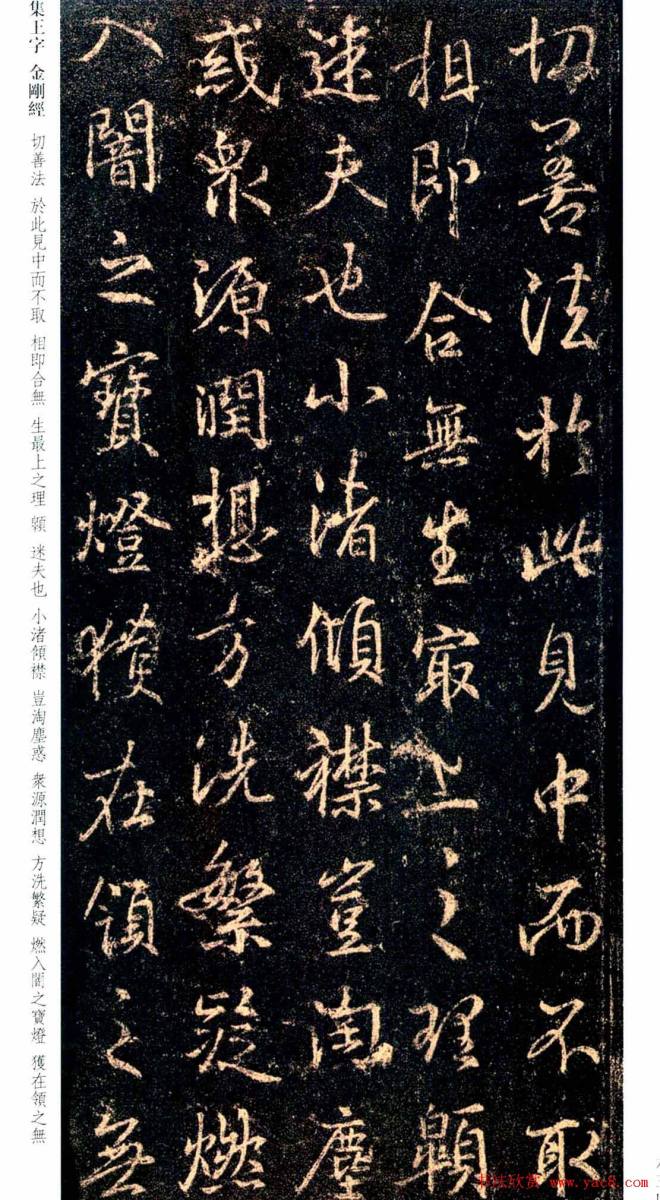 切善法於此見中而不取
相即合無生最上之理
迷夫也小渚傾襟豈淘塵
惑眾源潤想方洗繁疑燃
入闇之寶燈獲在領之無
集王字 金剛經 切善法 於此見中而不取 相即合無 生最上之理 迷夫也 小渚傾襟 豈淘塵惑 衆源潤想 方洗繁疑 燃入闇之寶燈 獲在領之無
书法欣赏 www.yac8.com